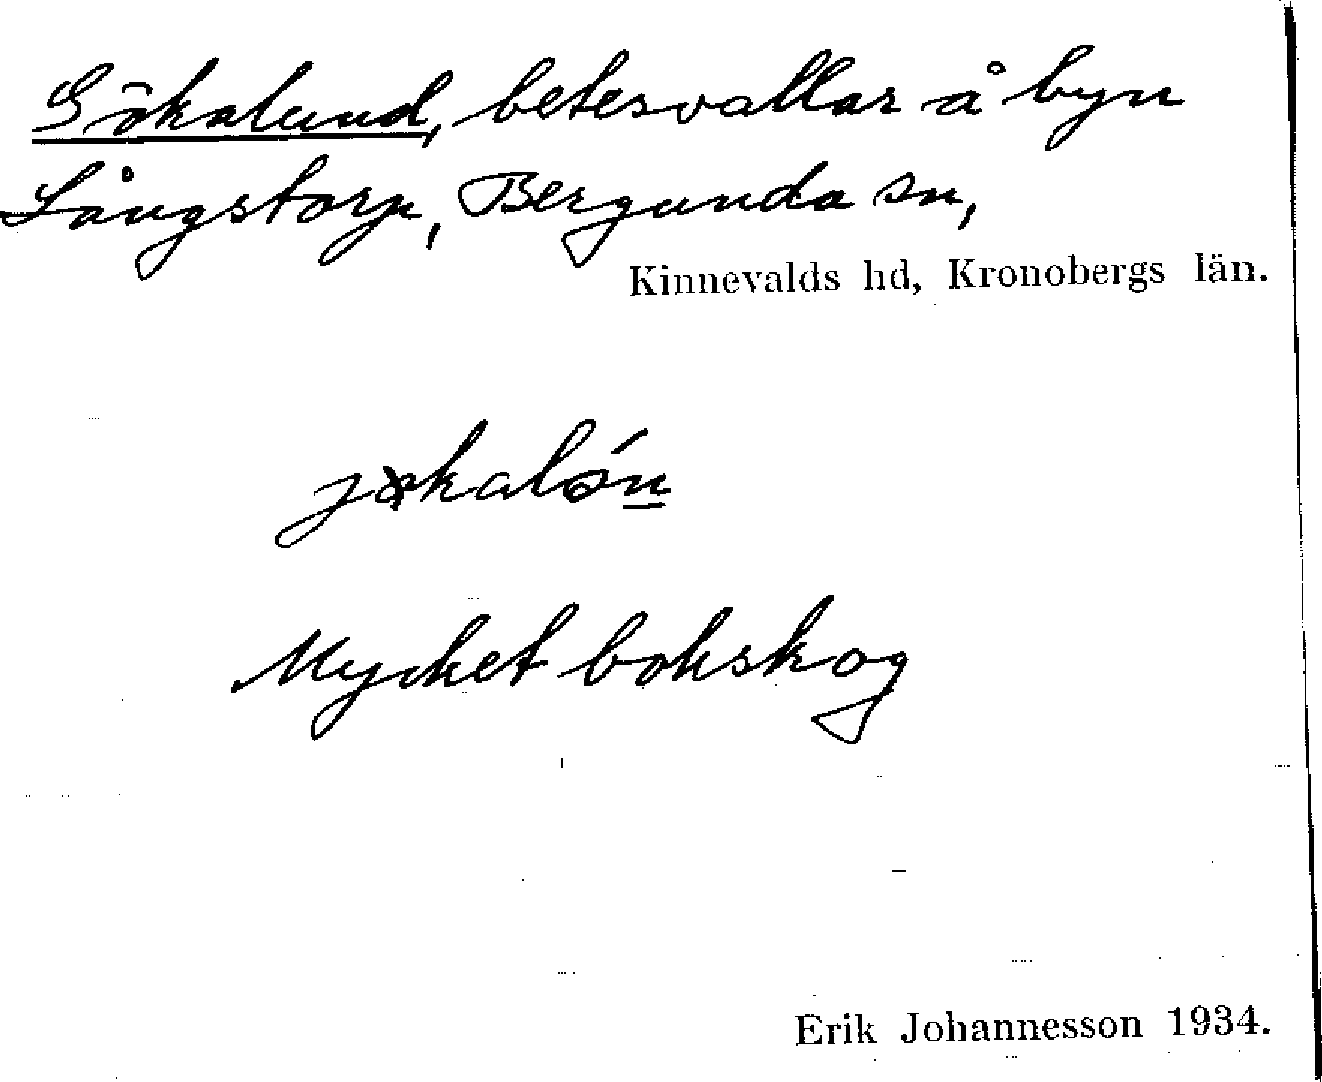 Gökalund, betesvallar å byn
Långstorp, Bergunda sn,
Kinnevalds hd, Kronobergs län.
Mycket bokskog
Erik Johannesson 1934.